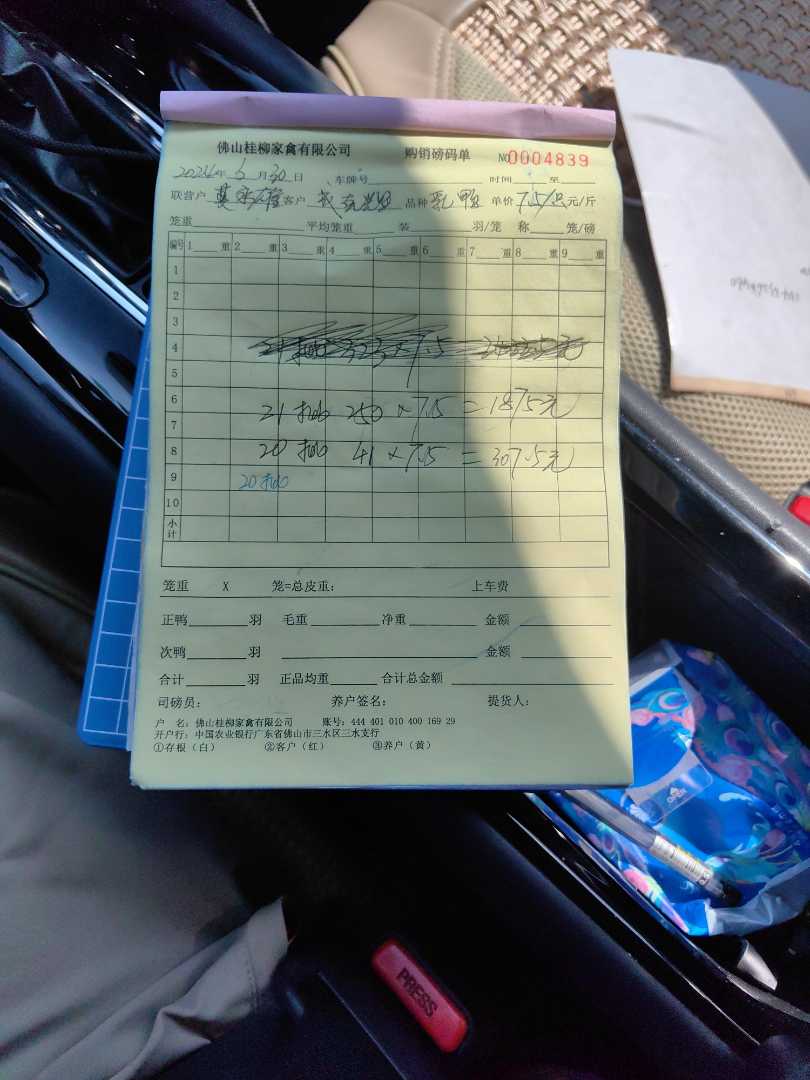 佛山桂柳家禽有限公司 购销磅码单 NO0004839
2024年6月30日 车牌号 时间 至
联营户 客户 品种 乳鸭 单价 7.5/只 元/斤
笼重 平均笼重 装 羽/笼 称 笼/磅
编号 1 重 2 重 3 重 4 重 5 重 6 重 7 重 8 重 9 重
1
2
3
4
5
6 21 250 × 7.5 = 1875元
7
8 20 41 × 7.5 = 307.5元
9 20
10
小计
笼重 X 笼=总皮重: 上车费
正鸭 羽 毛重 净重 金额
次鸭 羽 金额
合计 羽 正品均重 合计总金额
司磅员: 养户签名: 提货人:
户 名: 佛山桂柳家禽有限公司 账号: 444 401 010 400 169 29
开户行: 中国农业银行广东省佛山市三水区三水支行
①存根(白) ②客户(红) ③养户(黄)
OPEN
PRESS